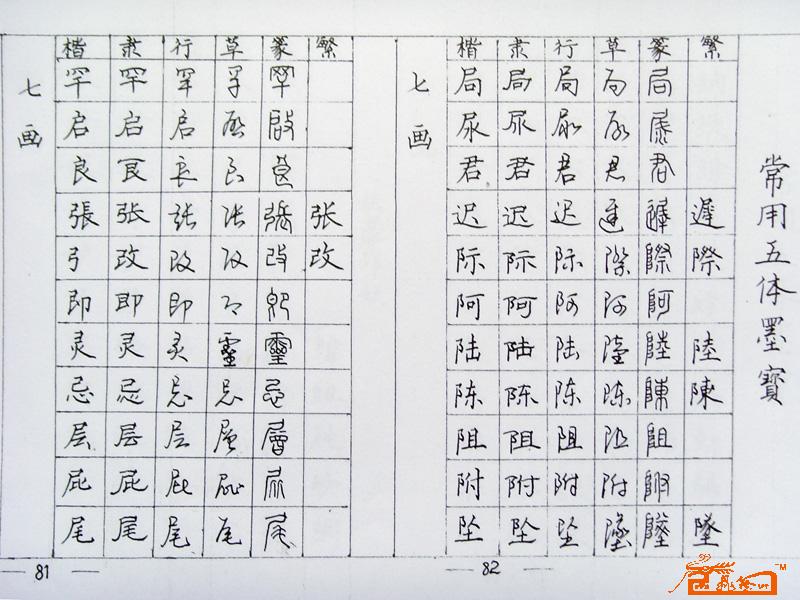 常用五体墨寶
七画
楷 隶 行 草 篆 繁
局 局 局 局 局
尿 尿 尿 尿 尿
君 君 君 君 君
迟 迟 迟 遲 遲 遲
际 际 际 際 際 際
阿 阿 阿 阿 阿
陆 陆 陆 陸 陸 陸
陈 陈 陈 陈 陳 陳
阻 阻 阻 阻 阻
附 附 附 附 附
坠 坠 坠 墜 墜 墜
82
七画
楷 隶 行 草 篆 繁
罕 罕 罕 罕 罕
启 启 启 啟 啟
良 良 良 良 良
張 张 張 张 張 张
改 改 改 改 改
即 即 即 即 即
灵 灵 灵 靈 靈
忌 忌 忌 忌 忌
层 层 层 層 層
屁 屁 屁 屁 屁
尾 尾 尾 尾 尾
81
TM